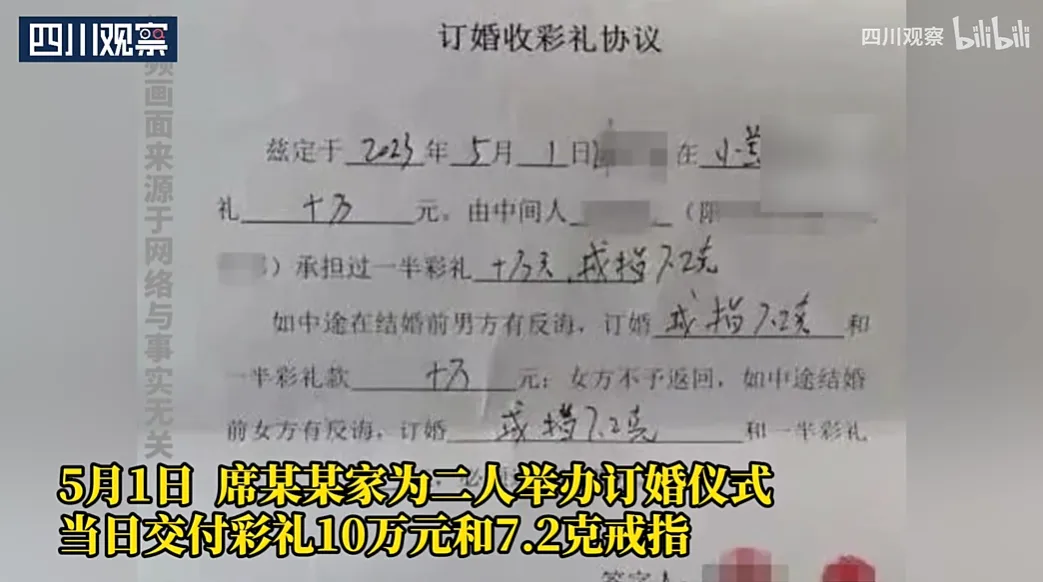 四川观察
四川观察 bilibili
频画面来源于网络与事实无关
订婚收彩礼协议
兹定于 2023 年 5 月 1 日 在 小
礼 十万 元，由中间人 （限
）承担过一半彩礼 十万元，戒指7.2克
如中途在结婚前男方有反海，订婚 戒指7.2克 和
一半彩礼款 十万 元；女方不予返回，如中途结婚
前女方有反海，订婚 戒指7.2克 和一半彩礼
5月1日 席某某家为二人举办订婚仪式
当日交付彩礼10万元和7.2克戒指